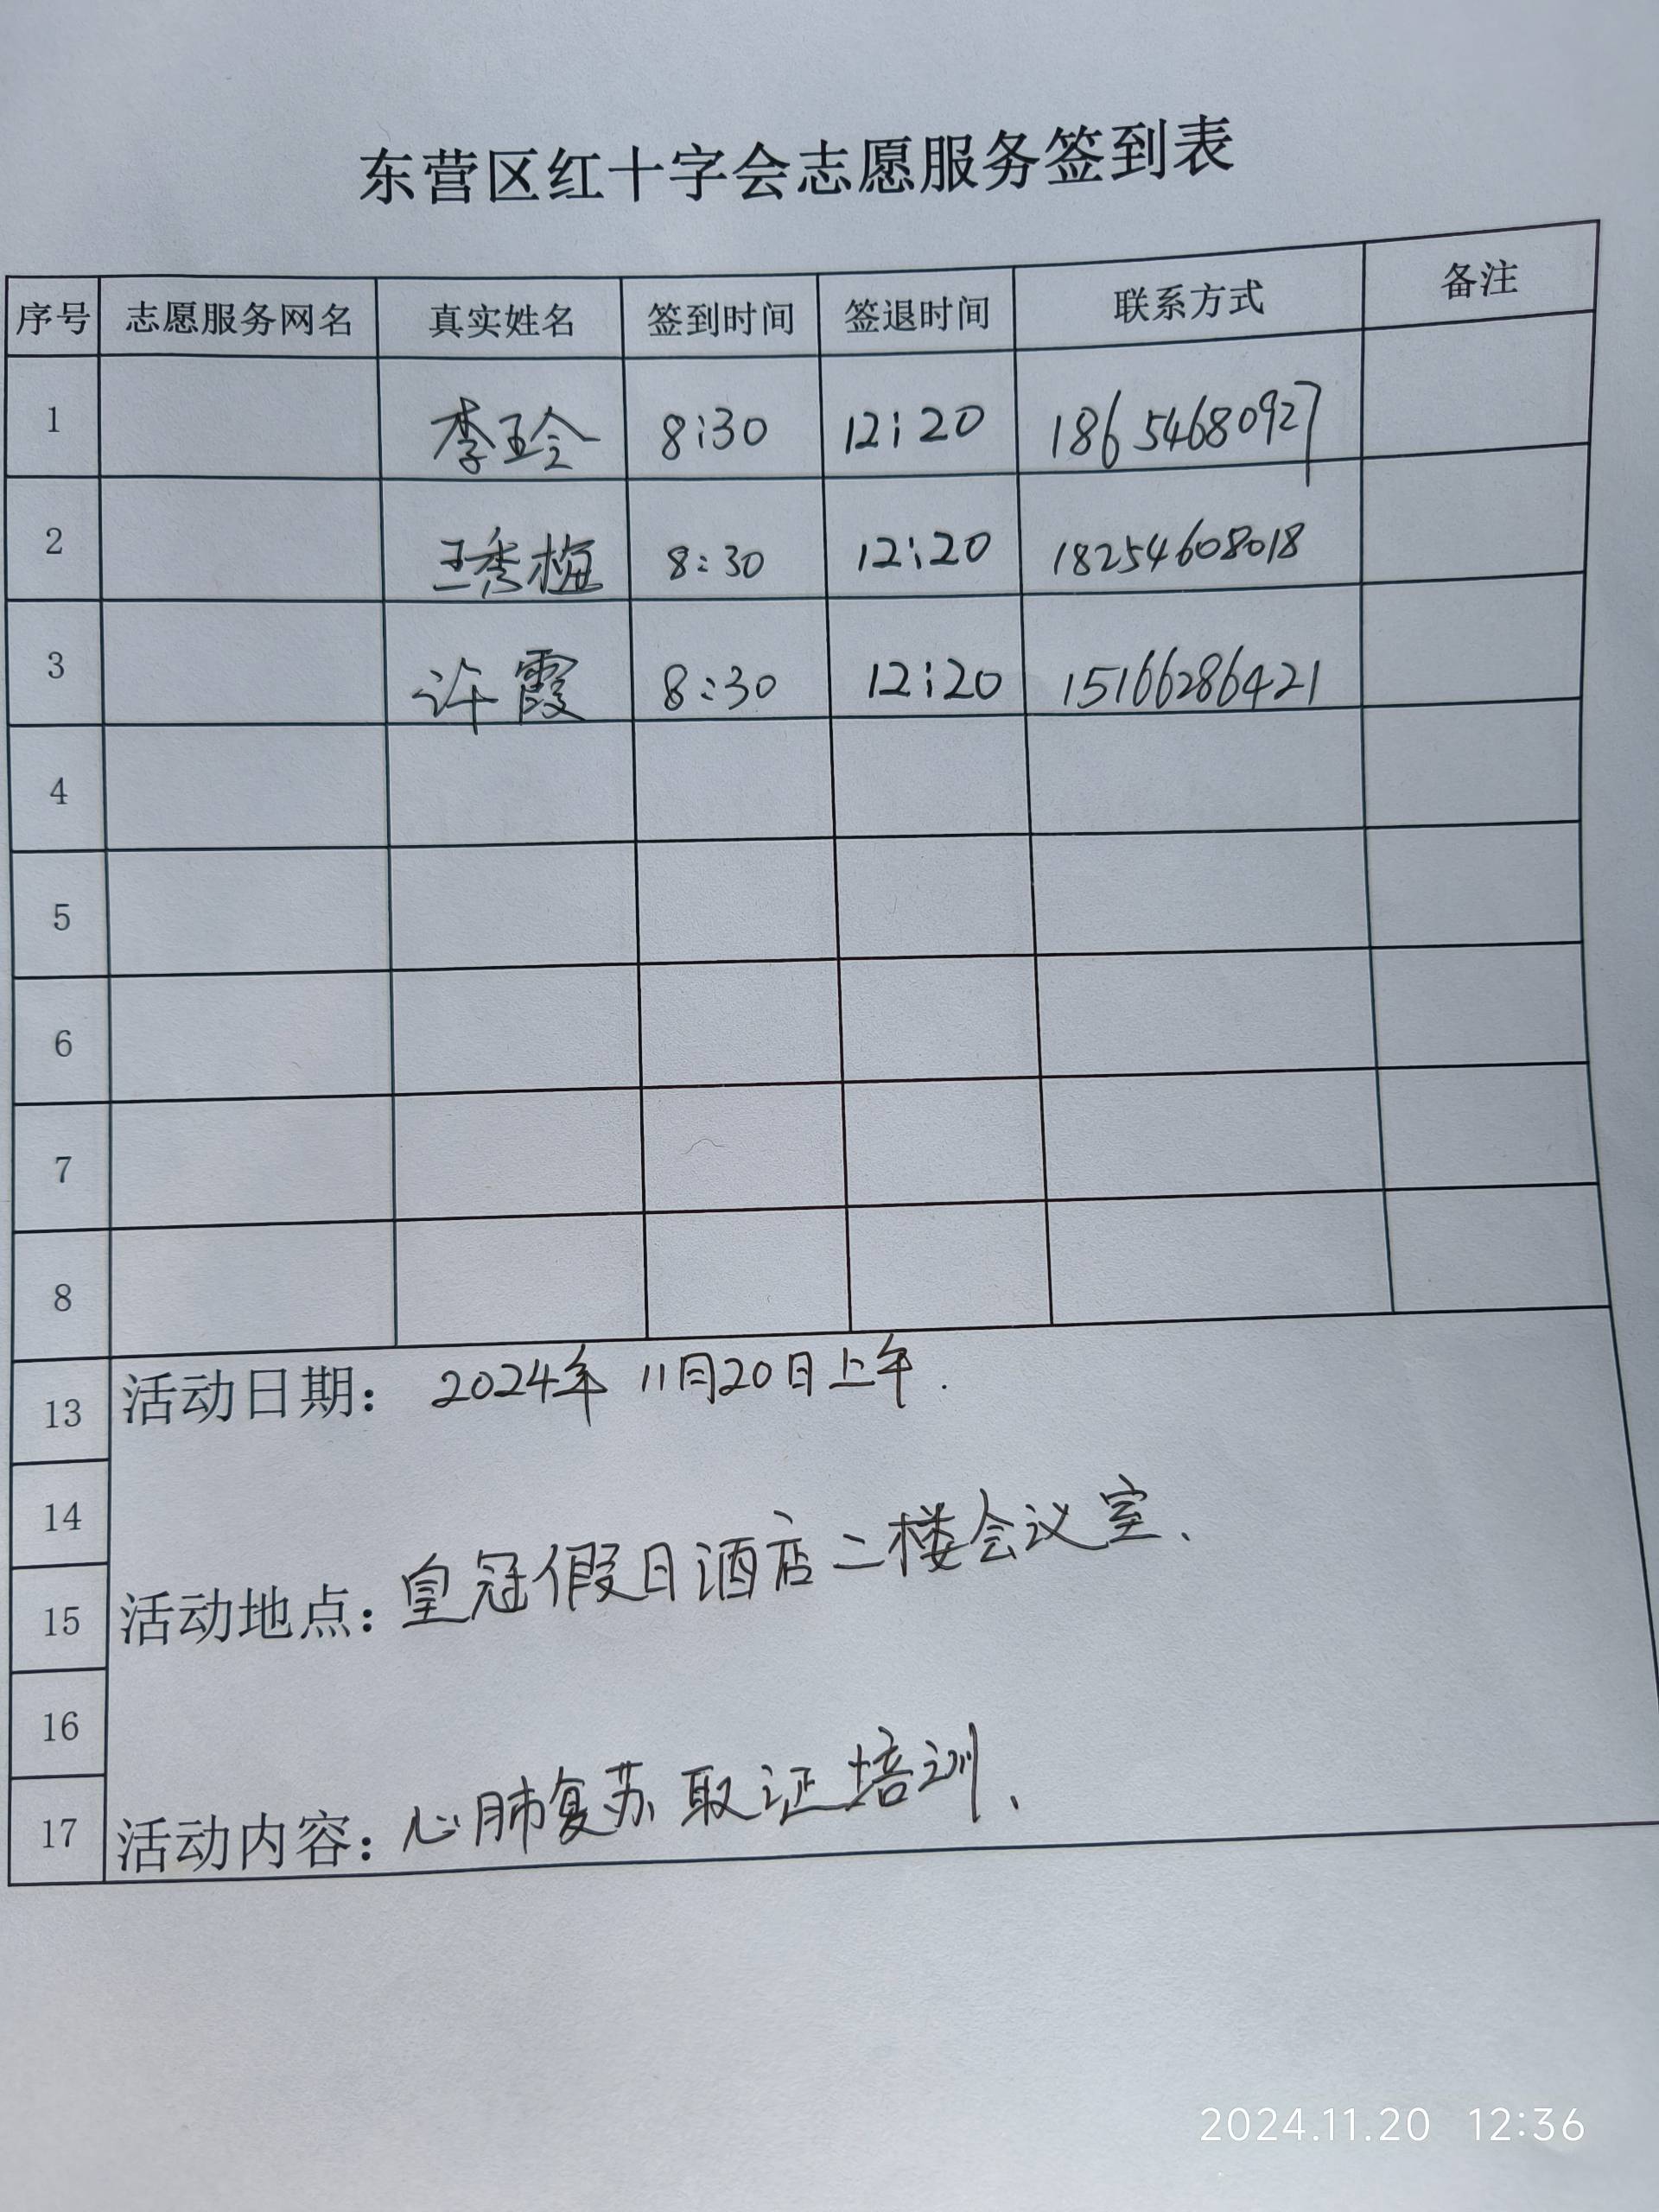 东营区红十字会志愿服务签到表
序号 志愿服务网名 真实姓名 签到时间 签退时间 联系方式 备注
1 李玲 8:30 12:20 18654680927
2 王秀梅 8:30 12:20 18254608018
3 许霞 8:30 12:20 15166286421
4
5
6
7
8
13 活动日期： 2024年 11月20日上午.
14
15 活动地点：皇冠假日酒店二楼会议室、
16
17 活动内容：心肺复苏取证培训、
2024.11.20 12:36